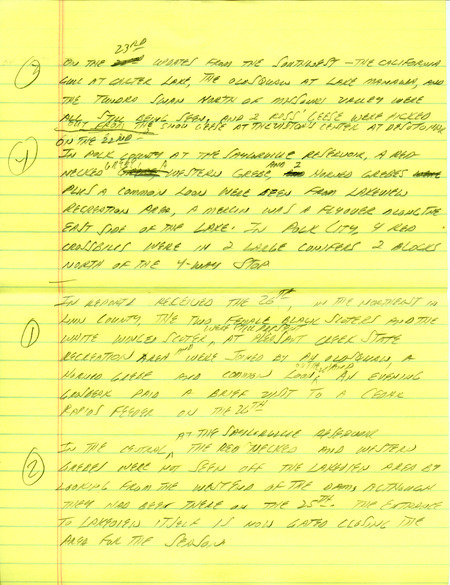 23RD
3 ON THE UPDATES FROM THE SOUTHWEST - THE CALIFORNIA
GULL AT CARTER LAKE, THE OLDSQUAW AT LAKE MANAWA, AND
THE TUNDRA SWAN NORTH OF MISSOURI VALLEY WERE
ALL STILL BEING SEEN, AND 2 ROSS' GEESE WERE PICKED
SNOW GEESE AT THE VISITORS CENTER AT DESOTO NWR
ON THE 22ND.
4 IN POLK COUNTY AT THE SAYLORVILLE RESERVOIR, A RED
NECKED GREBE, A WESTERN GREBE, AND 2 HORNED GREBES
PLUS A COMMON LOON WERE SEEN FROM LAKEVIEW
RECREATION AREA, A MERLIN WAS A FLYOVER ALONG THE
EAST SIDE OF THE LAKE. IN POLK CITY, 4 RED
CROSSBILLS WERE IN 2 LARGE CONIFERS 2 BLOCKS
NORTH OF THE 4-WAY STOP
IN REPORTS RECEIVED THE 26TH, IN THE NORTHEAST IN
1 LINN COUNTY, THE TWO FEMALE BLACK SCOTERS AND THE
WHITE WINGED SCOTER, WERE STILL PRESENT AT PLEASANT CREEK STATE
RECREATION AREA AND WERE JOINED BY AN OLDSQUAW, A
HORNED GREBE AND COMMON LOON. AN EVENING
GROSBEAK PAID A BRIEF VISIT TO A CEDAR
RAPIDS FEEDER ON THE 26TH
AT THE SAYLORVILLE RESERVOIR
2 IN THE CENTRAL, THE RED NECKED AND WESTERN
GREBES WERE NOT SEEN OFF THE LAKEVIEW AREA BY
LOOKING FROM THE WEST END OF THE DAM, ALTHOUGH
THEY HAD BEEN THERE ON THE 25TH. THE ENTRANCE
TO LAKEVIEW ITSELF IS NOW GATED CLOSING THE
AREA FOR THE SEASON